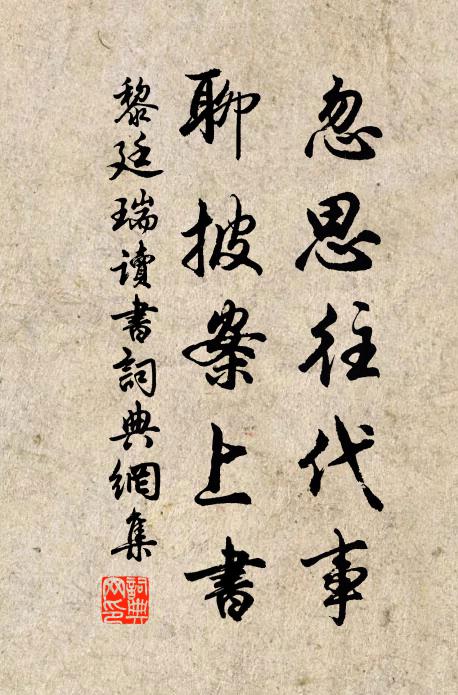 忽思往代事
聊披案上書
黎廷瑞讀書詞典網集
詞典網印